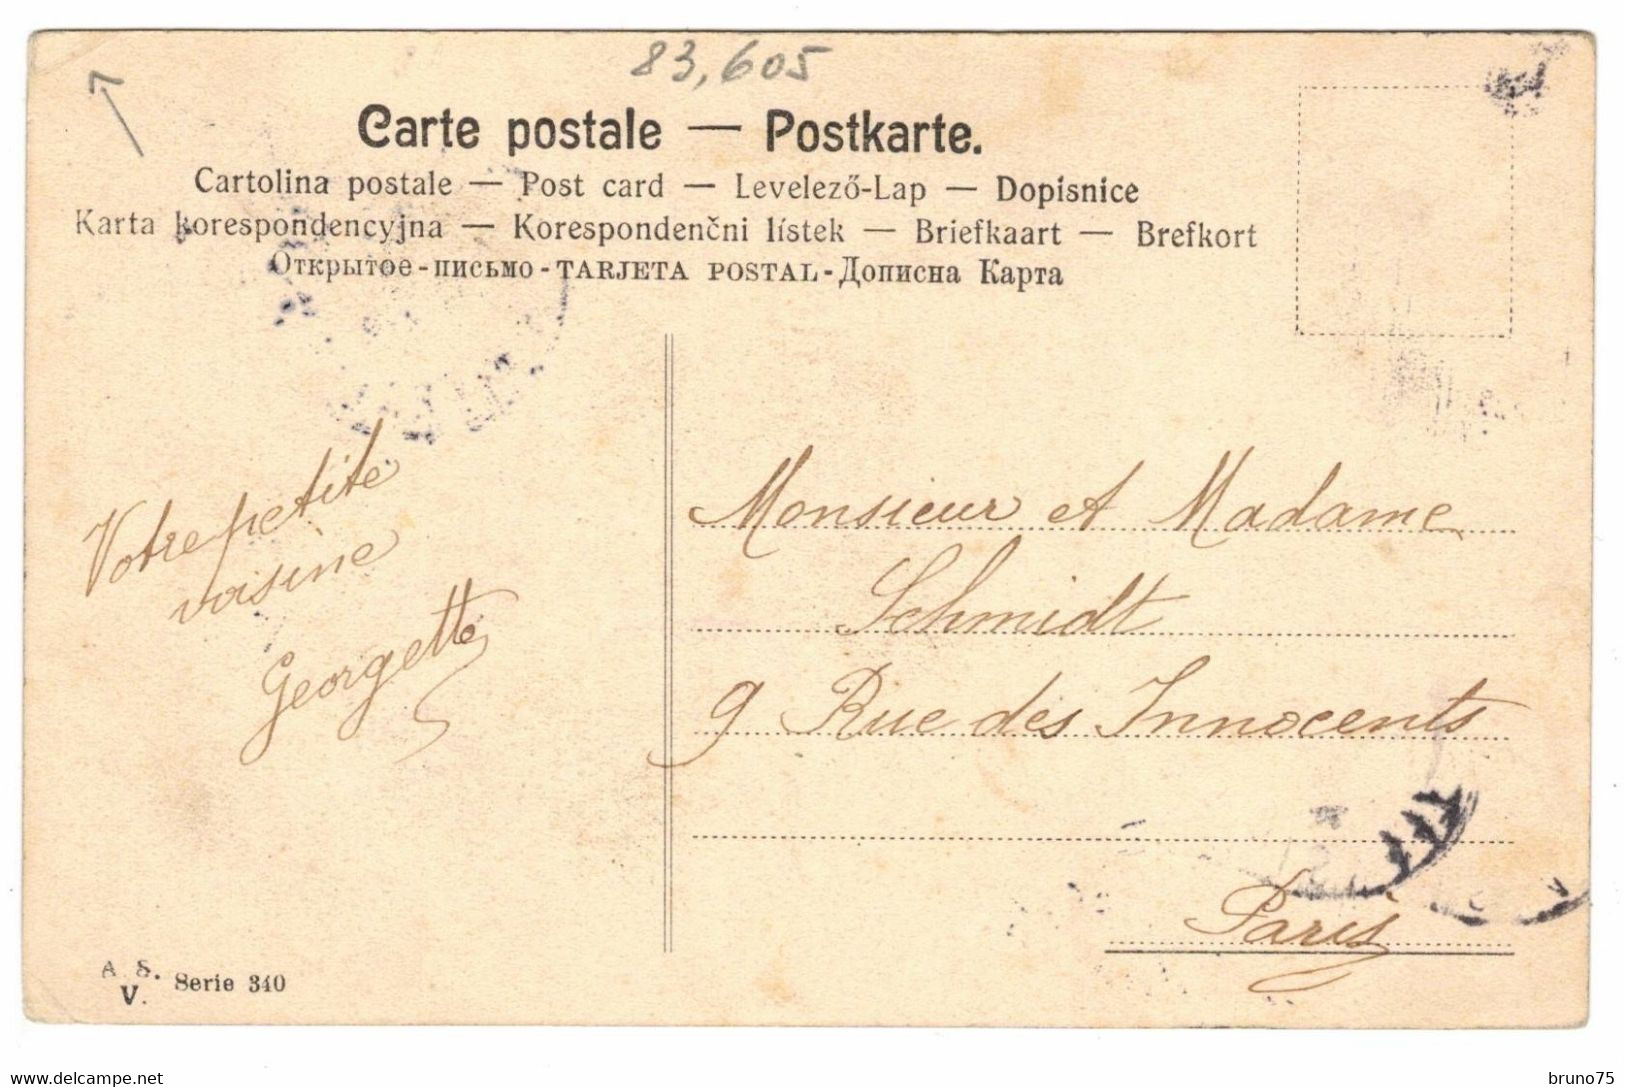 83,605
Carte postale — Postkarte.
Cartolina postale — Post card — Levelező-Lap — Dopisnice
Karta korespondencyjna — Korespondenční lístek — Briefkaart — Brefkort
Открытое-письмо-TARJETA POSTAL-Дописна Карта
Votre petite
voisine
Georgette
Monsieur et Madame
Schmidt
9 Rue des Innocents
Paris
A. S.
V. Serie 340
www.delcampe.net
bruno75